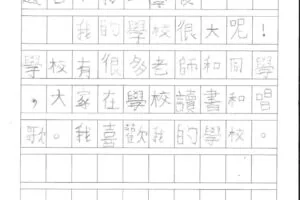 我的學校很大呢！
學校有很多老師和同學
，大家在學校讀書和唱
歌。我喜歡我的學校。